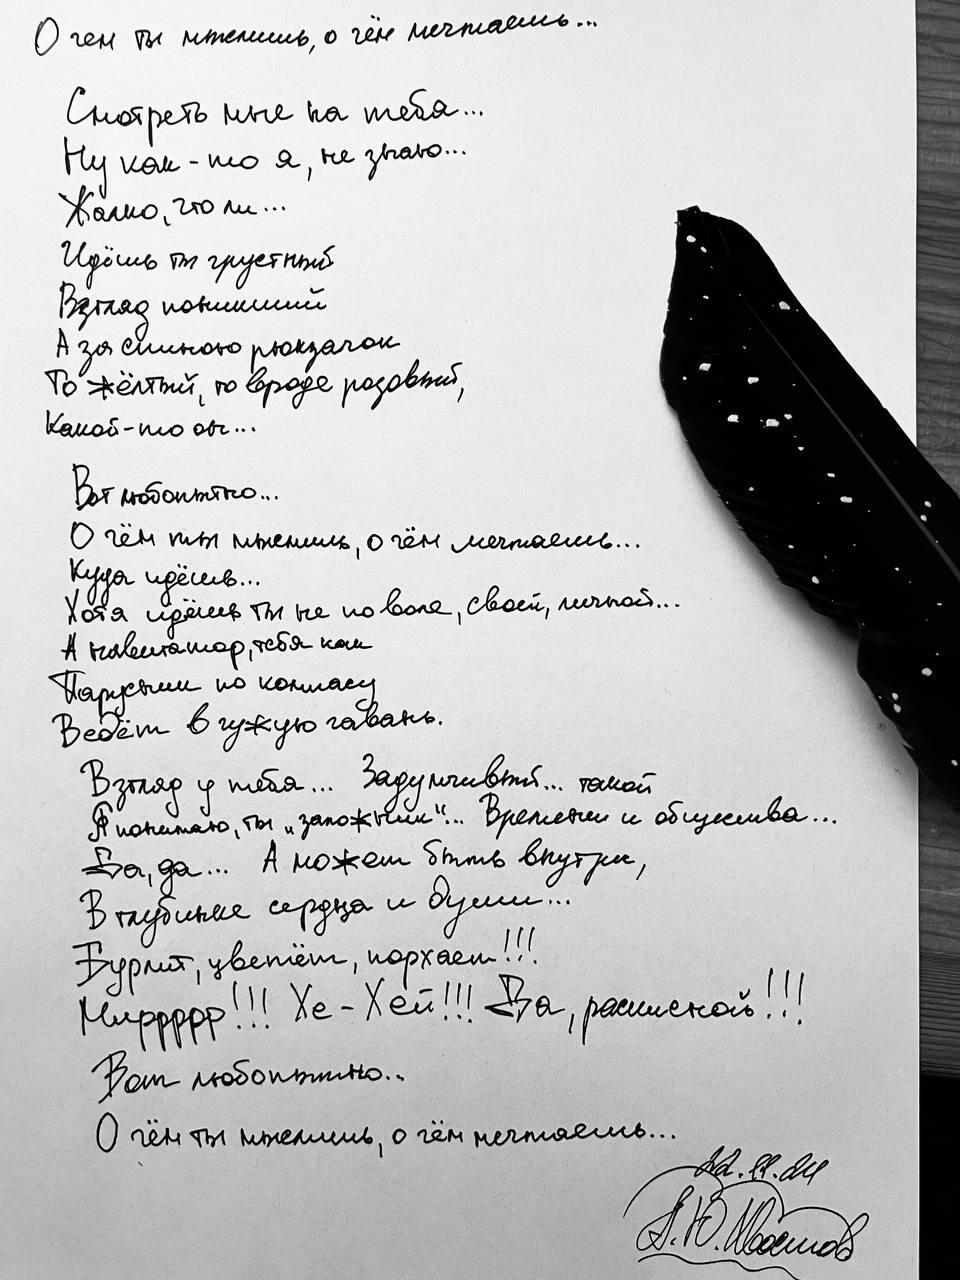 О чем ты мыслишь, о чём мечтаешь...
Смотреть мне на тебя...
Ну как-то я, не знаю...
Жалко, что ли...
Идёшь ты грустный
Взгляд поникший
А за спиною рюкзачок
То жёлтый, то вроде розовый,
Какой-то он...
Вот любопытно...
О чём ты мыслишь, о чём мечтаешь...
Куда идёшь...
Хотя идёшь ты не по воле, своей, личной...
А навигатор, тебя как
Парусник по компасу
Ведёт в чужую гавань.
Взгляд у тебя... Задумчивый... такой
Я понимаю, ты „заложник“... Времени и общества...
Да, да... А может быть внутри,
В глубинке сердца и души...
Бурлит, цветёт, порхает!!!
Мирррр!!! Хе-Хей!!! Да, расписной!!!
Вот любопытно..
О чём ты мыслишь, о чём мечтаешь...
22.11.24